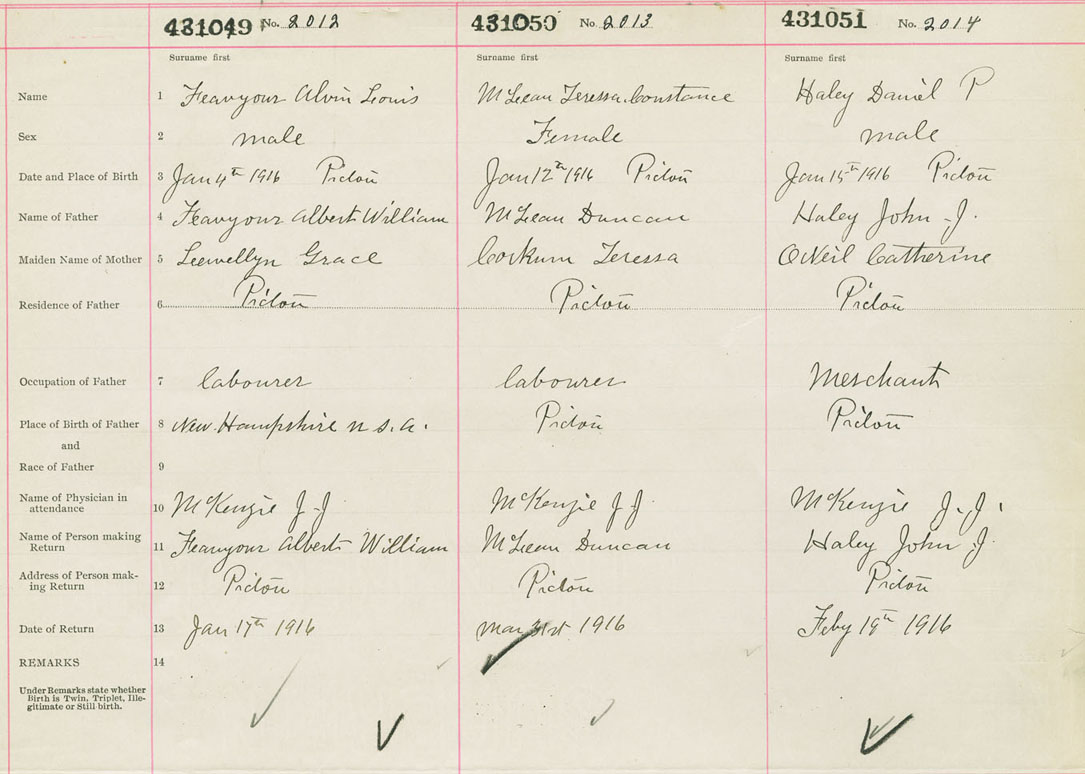 431049 No. 2012 431050 No. 2013 431051 No. 2014
Surname first Surname first Surname first
Name 1 Feavyour Alvin Louis McLean Teressa Constance Haley Daniel P
Sex 2 male Female male
Date and Place of Birth 3 Jan 4th 1916 Pictou Jan 12th 1916 Pictou Jan 15th 1916 Pictou
Name of Father 4 Feavyour Albert William McLean Duncan Haley John J.
Maiden Name of Mother 5 Leewellyn Grace Corkum Teressa ONeil Catherine
Residence of Father 6 Pictou Pictou Pictou
Occupation of Father 7 labourer labourer Merchant
Place of Birth of Father 8 New Hampshire U.S.A. Pictou Pictou
and
Race of Father 9
Name of Physician in
attendance 10 McKenzie J J McKenzie J J McKenzie J. J.
Name of Person making
Return 11 Feavyour Albert William McLean Duncan Haley John J.
Address of Person mak-
ing Return 12 Pictou Pictou Pictou
Date of Return 13 Jan 17th 1916 Mar 31st 1916 Feby 19th 1916
REMARKS 14
Under Remarks state whether
Birth is Twin, Triplet, Ille-
gitimate or Still birth.